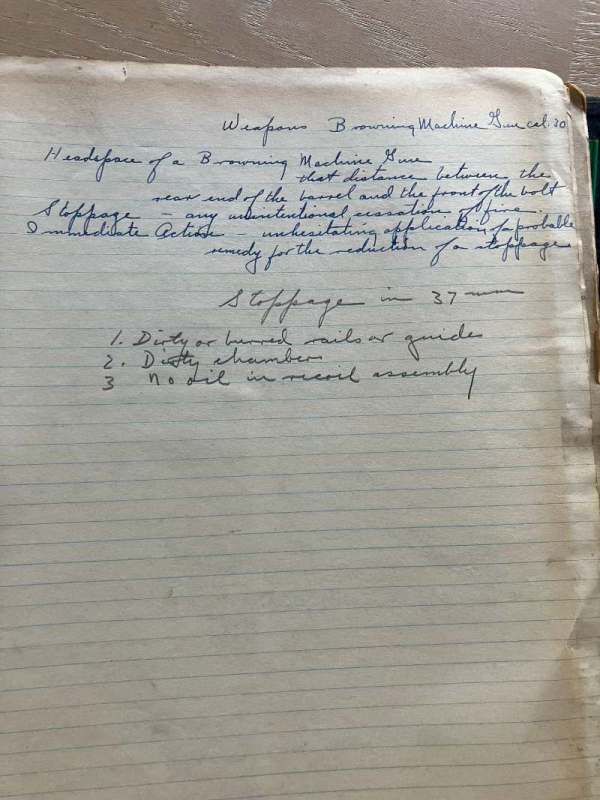 Weapons Browning Machine Gun cal. 30
Headspace of a Browning Machine Gun
that distance between the
rear end of the barrel and the front of the bolt
Stoppage - any unintentional cessation of fire -
Immediate Action - unhesitating application of a probable
remedy for the reduction of a stoppage
Stoppage in 37 mm
1. Dirty or burred rails or guide
2. Dirty chamber
3 No oil in recoil assembly